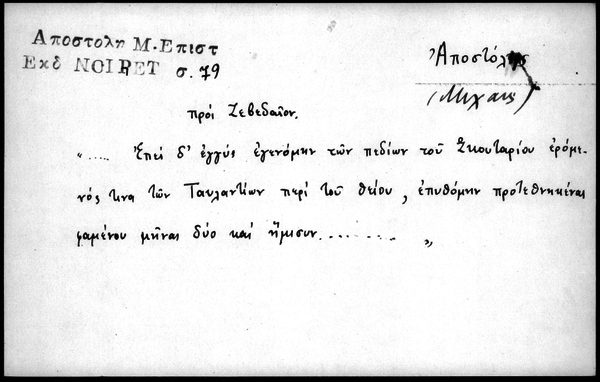 Αποστολη Μ. Επιστ
Εκδ NOIRET σ. 79
Ἀποστόλης
(Μιχαὴλ)
πρὸς Ζεβεδαῖον.
"..... Ἐπεὶ δ' ἐγγὺς ἐγενόμην τῶν πεδίων τοῦ Σκουταρίου ἐρόμε-
νός τινα τῶν Ταυλαντίων περὶ τοῦ θείου, ἐπυθόμην προτεθνηκέναι
φαμένου μῆνας δύο καὶ ἥμισυν ......... "